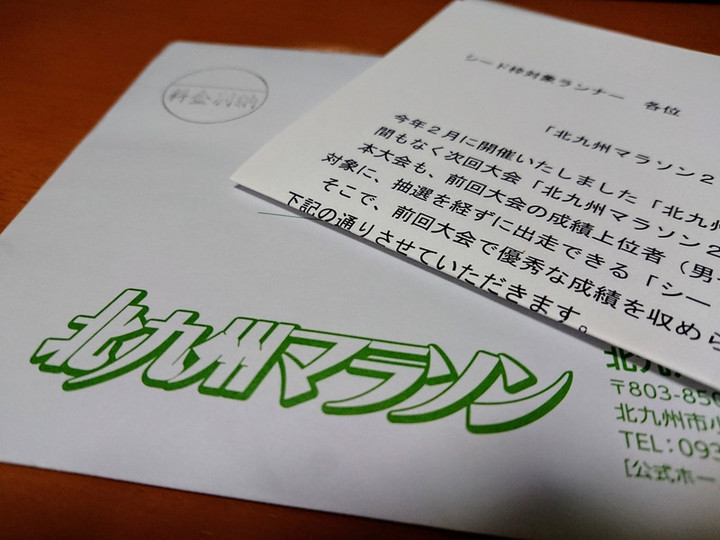 料金別納
シード枠対象ランナー 各位
「北九州マラソン2
今年2月に開催いたしました「北九州
間もなく次回大会「北九州マラソン2
本大会も、前回大会の成績上位者（男
対象に、抽選を経ずに出走できる「シー
そこで、前回大会で優秀な成績を収めら
下記の通りさせていただきます。
北九州マラソン
北九
〒803-850
北九州市小
TEL：093
［公式ホー